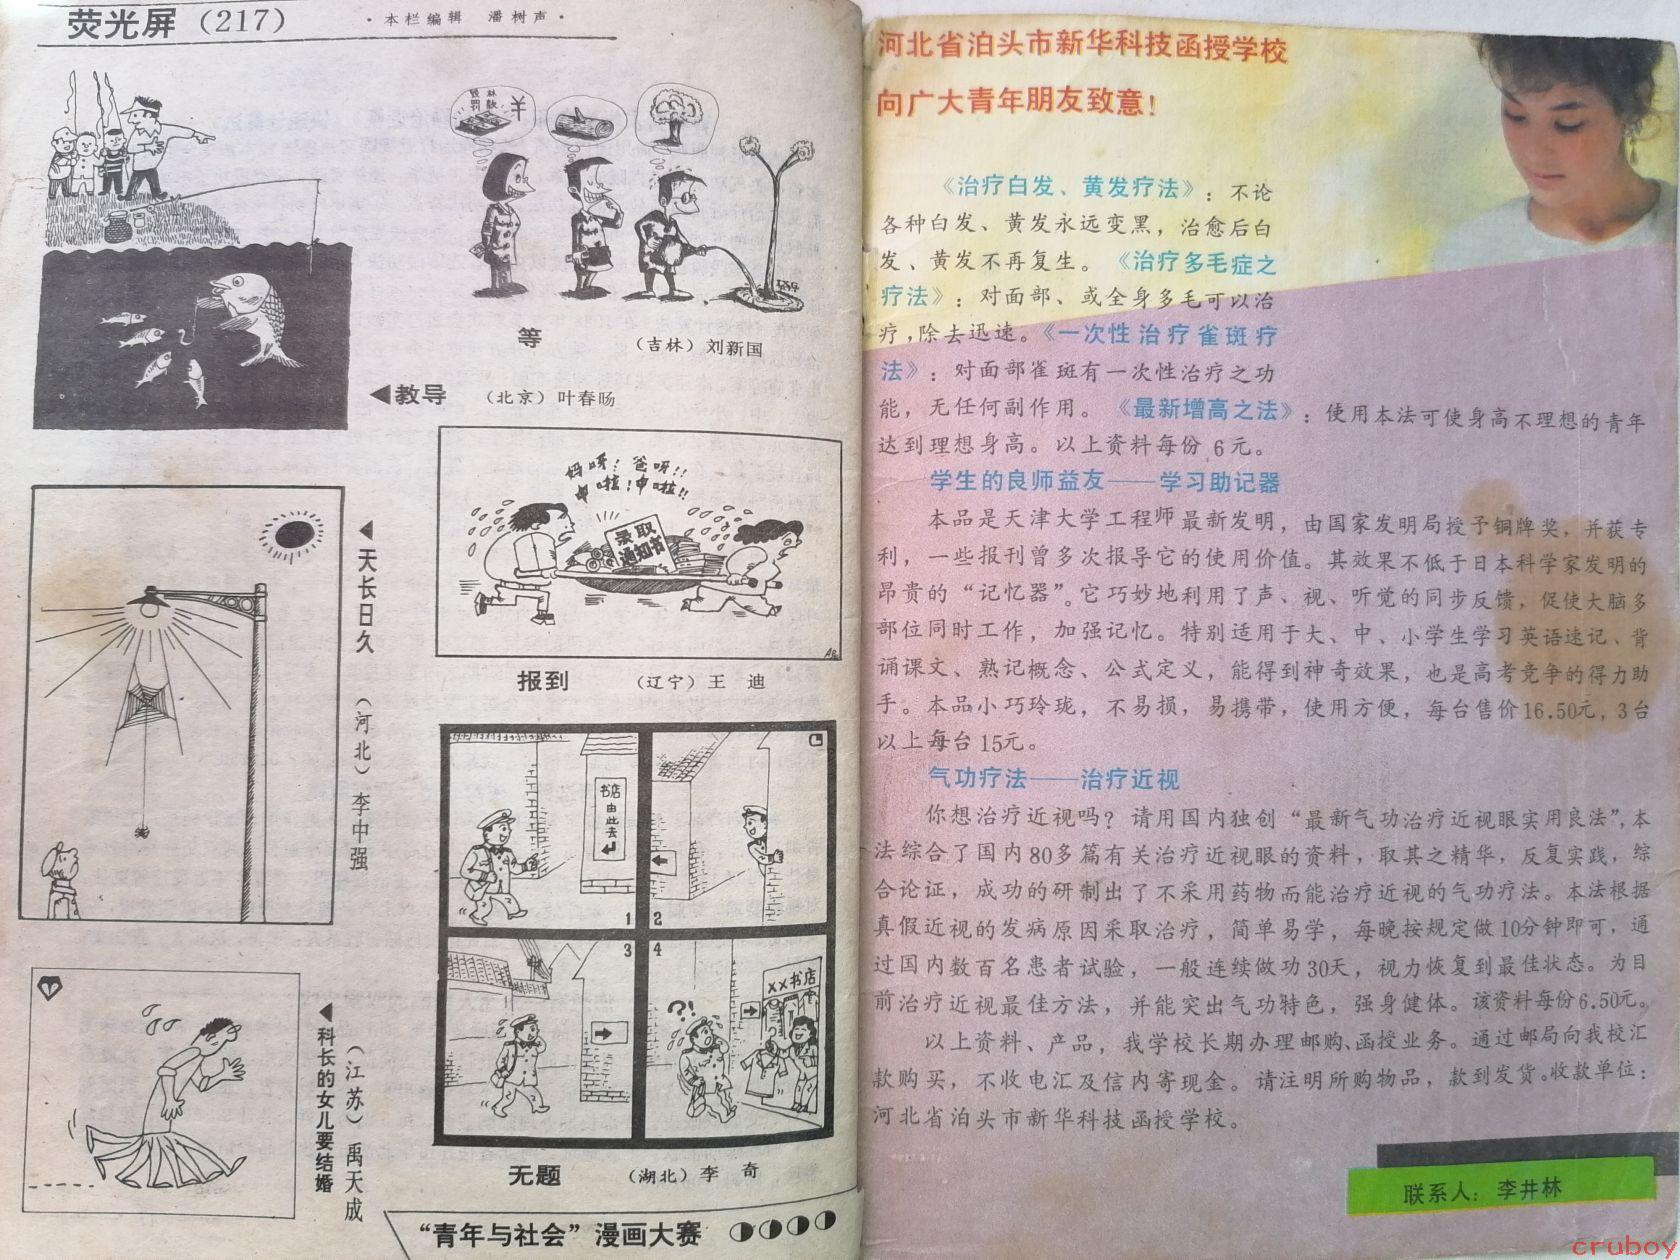 荧光屏（217）
·本栏编辑 潘树声·
毁林
罚款
¥
等
（吉林）刘新国
◀教导 （北京）叶春旸
妈呀！爸呀!!
中啦！中啦!!
录取
通知书
报到
（辽宁）王 迪
◀天长日久 （河北）李中强
书店由此去
1
2
3
4
?!
××书店
无题
（湖北）李 奇
◀科长的女儿要结婚
（江苏）禹天成
“青年与社会”漫画大赛
河北省泊头市新华科技函授学校
向广大青年朋友致意！
《治疗白发、黄发疗法》：不论
各种白发、黄发永远变黑，治愈后白
发、黄发不再复生。《治疗多毛症之
疗法》：对面部、或全身多毛可以治
疗，除去迅速。《一次性治疗雀斑疗
法》：对面部雀斑有一次性治疗之功
能，无任何副作用。《最新增高之法》：使用本法可使身高不理想的青年
达到理想身高。以上资料每份 6元。
学生的良师益友——学习助记器
本品是天津大学工程师最新发明，由国家发明局授予铜牌奖，并获专
利，一些报刊曾多次报导它的使用价值。其效果不低于日本科学家发明的
昂贵的“记忆器”。它巧妙地利用了声、视、听觉的同步反馈，促使大脑多
部位同时工作，加强记忆。特别适用于大、中、小学生学习英语速记、背
诵课文、熟记概念、公式定义，能得到神奇效果，也是高考竞争的得力助
手。本品小巧玲珑，不易损，易携带，使用方便，每台售价16.50元，3台
以上每台15元。
气功疗法——治疗近视
你想治疗近视吗？请用国内独创“最新气功治疗近视眼实用良法”，本
法综合了国内80多篇有关治疗近视眼的资料，取其之精华，反复实践，综
合论证，成功的研制出了不采用药物而能治疗近视的气功疗法。本法根据
真假近视的发病原因采取治疗，简单易学，每晚按规定做10分钟即可，通
过国内数百名患者试验，一般连续做功30天，视力恢复到最佳状态。为目
前治疗近视最佳方法，并能突出气功特色，强身健体。该资料每份6.50元。
以上资料、产品，我学校长期办理邮购、函授业务。通过邮局向我校汇
款购买，不收电汇及信内寄现金。请注明所购物品，款到发货。收款单位：
河北省泊头市新华科技函授学校。
联系人：李井林
cruboy